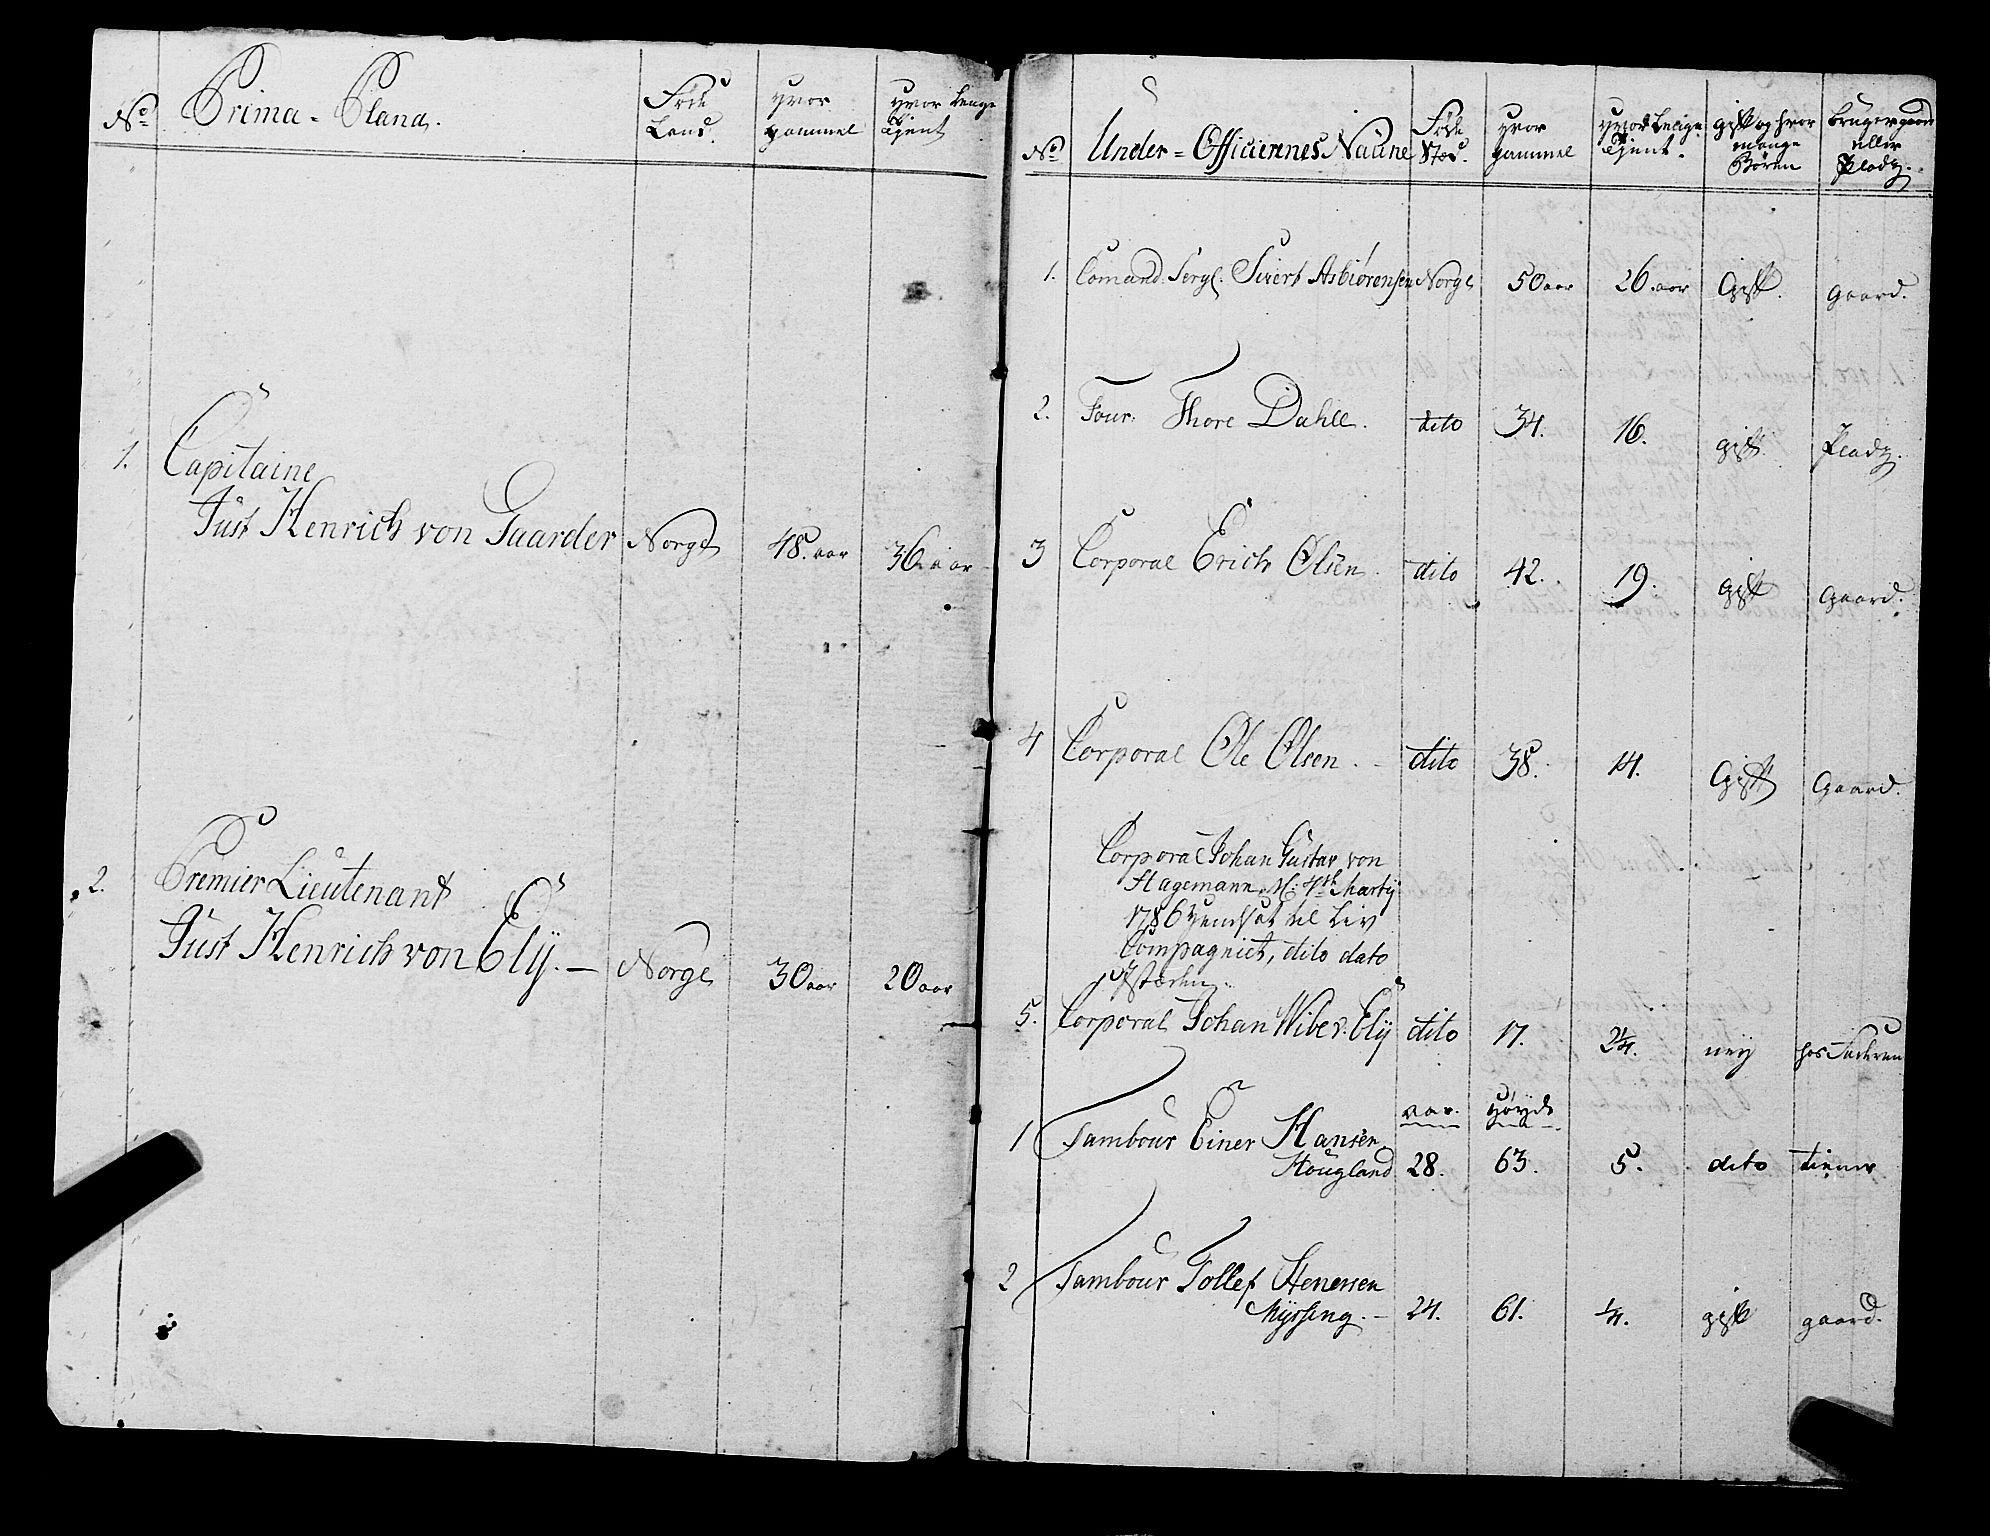 No Prima-Plana. Føde Land. Hvor gammel Hvor Lenge Tient
1. Capitaine
Just Henrich von Gaarder Norge 48. aar 36. aar
2. Premier Lieutenant
Just Henrich von Elÿ. — Norge 30 aar 20 aar
No Under-Officiernes Naune Føde Stæd. Hvor gammel Hvor Lenge Tient. gift og hvor mange Børen bruger gaard eller Pladz.
1. Comand. Serg. Sivert Asbiørensen Norge 50 aar 26. aar Gift. gaard.
2. Four. Thore Dahle. dito 34. 16. gift. Pladz.
3 Corporal Erich Olsen. dito 42. 19. gift gaard.
4 Corporal Ole Olsen. - dito 38. 14. Gift gaard.
Corporal Johan Gustav von
Hagemann 4de Martÿ
1786 til Liv
Compagniet, dito dato
5. Corporal Johan Wibe v. Elÿ dito 17. 2¼. neÿ hos Faderen
aar. Høyde
1 Tambour Einer Hansen
Hougland 28. 63. 5. dito tiener
2 Tambour Tollef Henersen
24. 61. ¼. gift gaard.